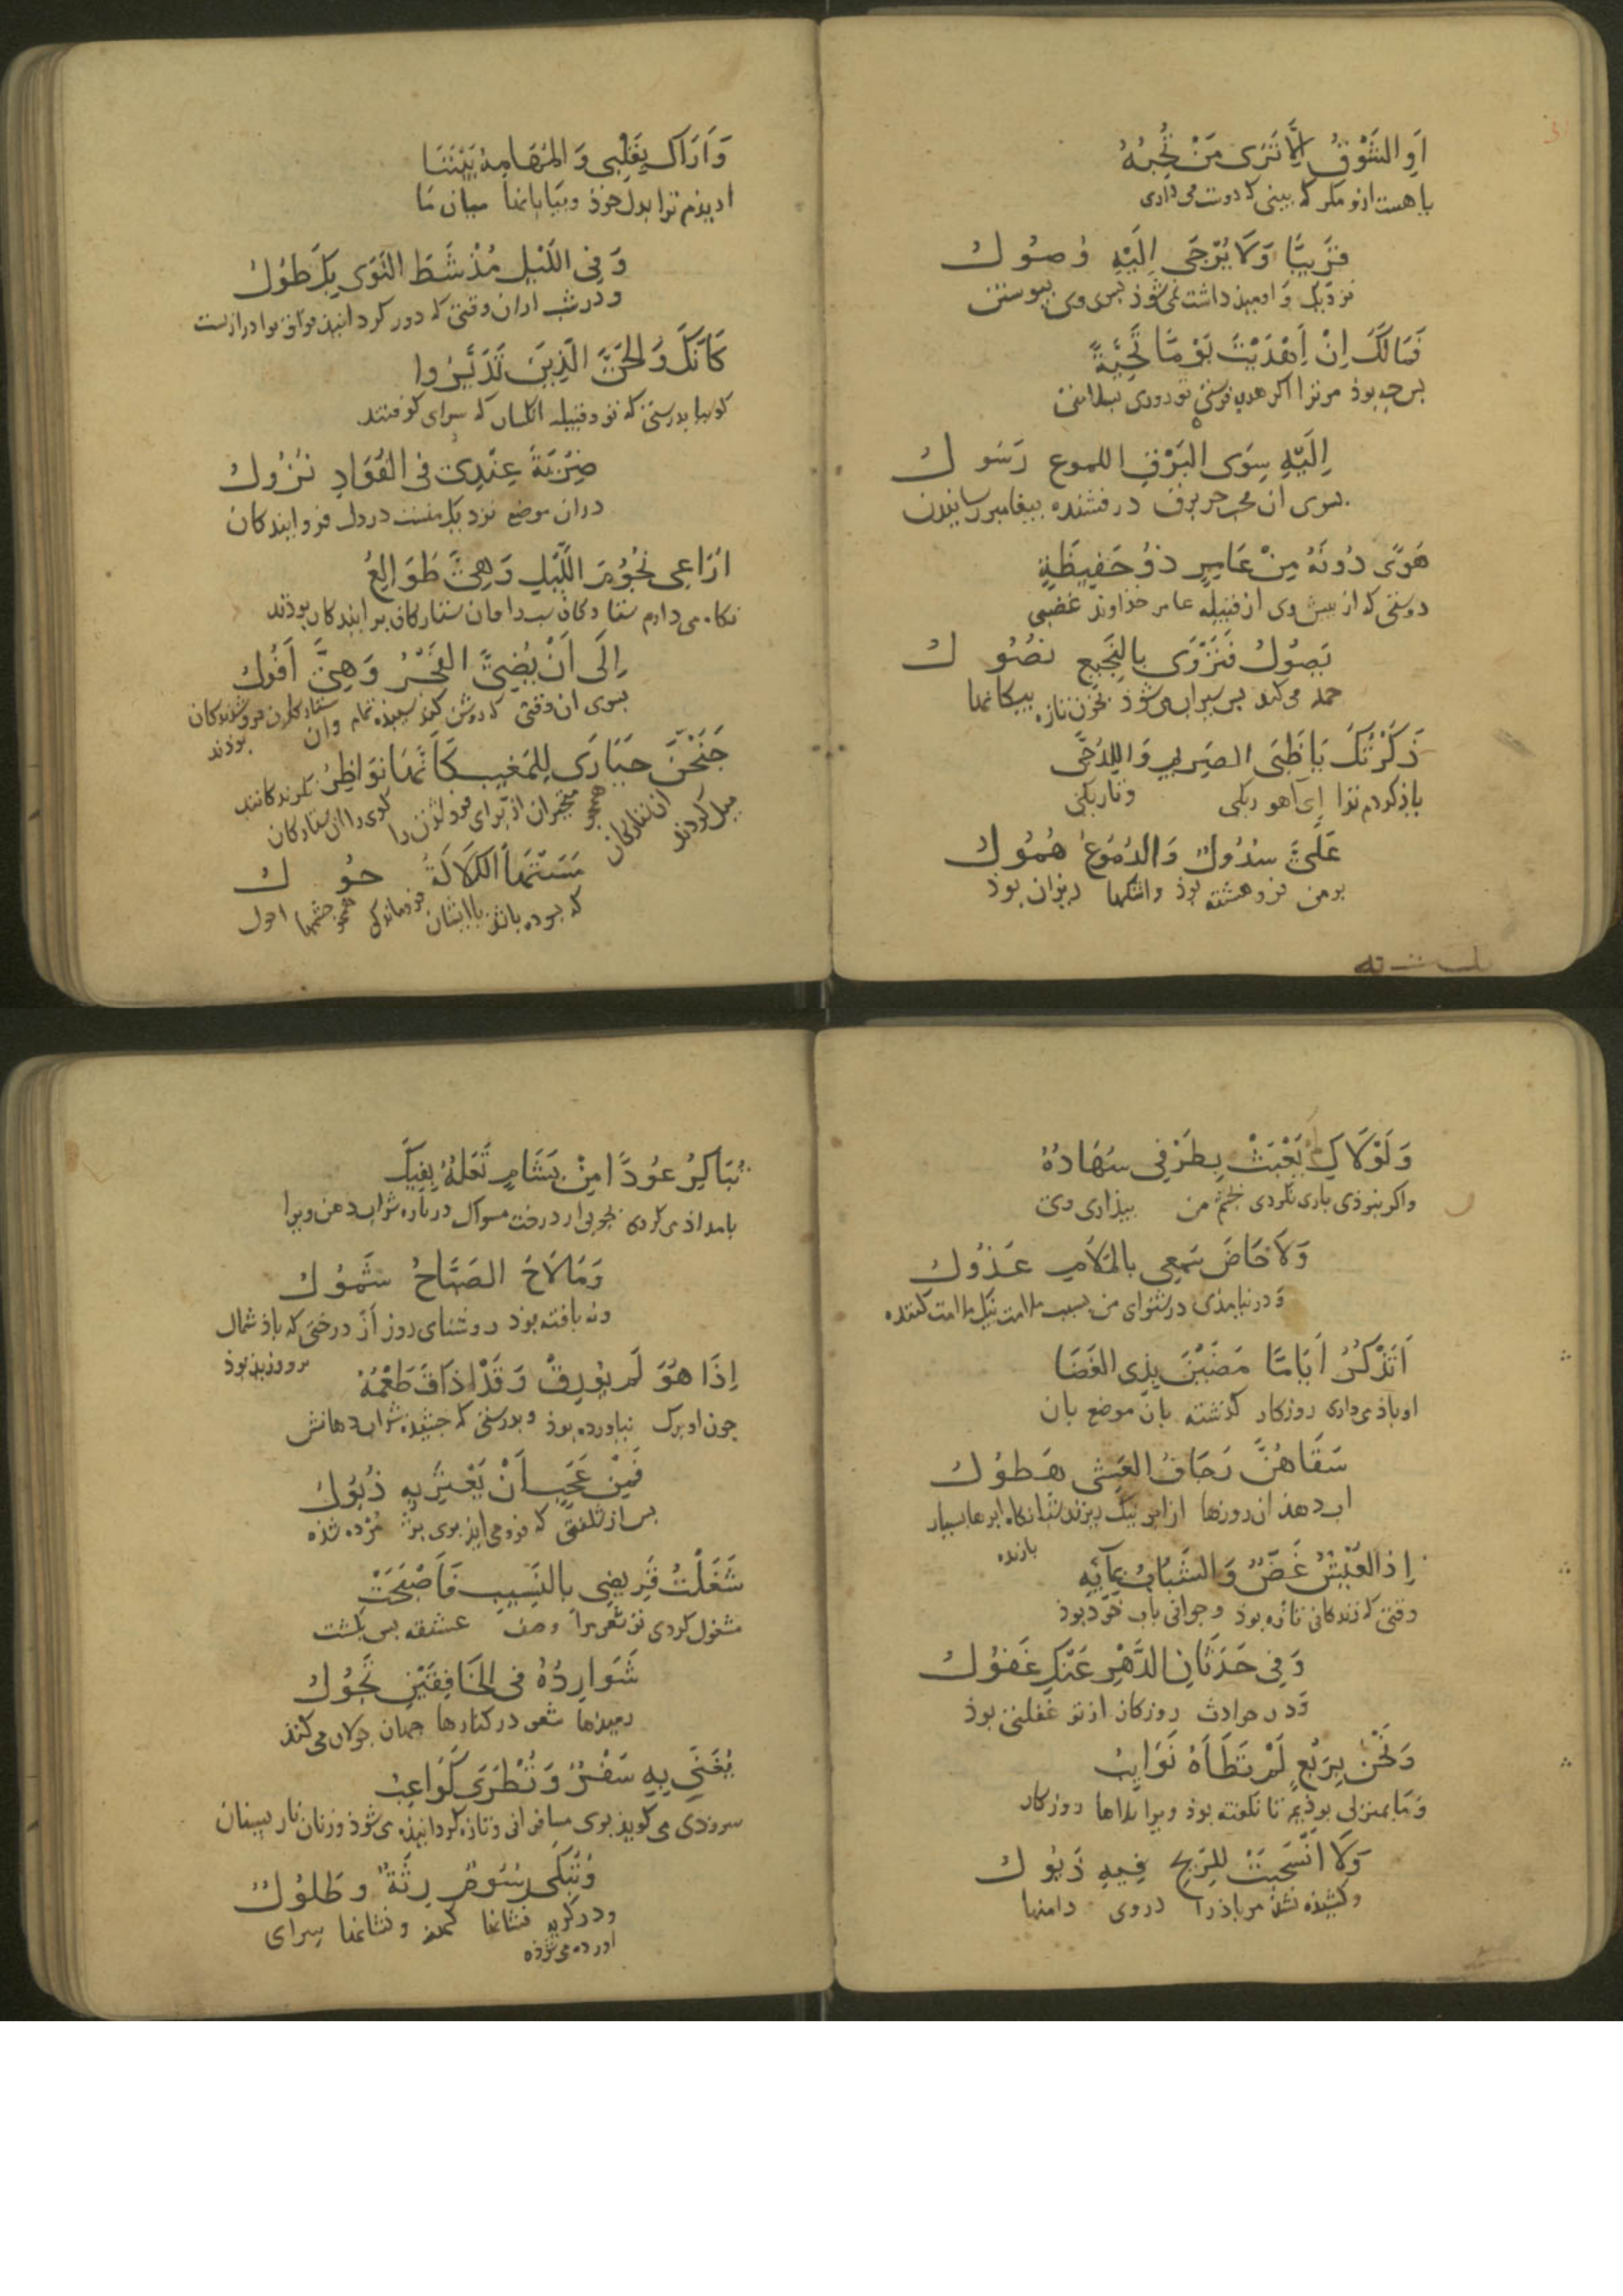 اَوِ الشَوْقُ اِلَّا تَرَى مَنْ تُحِبُّهُ
یا هست ارزو مکر که بینی که دوست می داری
قَرِيبًا وَلَا يُرْجَى اِلَيْهِ وُصُولُ
نزدیک و اومیذ داشت نمی شوذ بسوی وی بیوستن
فَمَا لَكَ اِنْ اَهْدَيْتَ يَوْمًا تَحِيَّةً
بس جه بوذ مر ترا اکر هدیه فرستی تو روزی سلامی
اِلَيْهِ سِوَى البَرْقِ اللموع رَسُولُ
بسوی ان جز برق درفشنده بیغامبر رسانیدن
هَوًى دُونَهُ مِنْ عَامِرٍ ذُو حَفِيظَةٍ
دوستی که از بیش وی از قبیله عامر خذاوند غضبی
يَصُولُ فَتَرْوَى بِالنَّجِيعِ نُصُولُ
حمله می کند بس سیراب می شوذ بخون تازه بیکانها
ذَكَرْتُكِ يَا ظَبْىَ الصَرِيمِ وَلِلدُجَى
یاذ کردم ترا ای آهو ریکی و تاریکی
عَلَىَّ سُدُولٌ وَالدُمُوعُ هُمُولُ
بر من فروهشته بوذ واشکها ریزان بوذ
وَاَرَاكِ بِقَلْبِى وَالمَهَامِهُ بَيْنَنَا
ادیذم ترا بدل خوذ وبیابانها میان ما
وَفِى اللَيْلِ مُذْ شَطَّ النَوَى بِكِ طُولُ
ودر شب از ان وقتی که دور کردانیذ فراق ترا درازیست
كَاَنَّكِ وَالحَىَّ الَذِينَ تَدَيَّرُوا
کویی بدرستی که تو وقبیله انکسان که سرای کرفتند
ضَرِيَّةَ عِنْدِى فِى الفُؤَادِ نُزُولُ
دران موضع نزدیک منست در دل فروایندکان
اُرَاعِى نُجُومَ اللَّيْلِ وَهِىَّ طَوَالِعُ
نکاه می دارم ستارکان شب را وان ستارکان برایندکان بوذند
اِلَى اَنْ يُضِئَ الفَجْرُ وَهِىَّ اُفُولُ
بسوی ان وقتی که روشن کند سبیذه تمام وان ستارکان فروشوندکان
بوذند
جَنَحْنَ حَيَارَى لِلمَغِيبِ كَاَنَّمَا نَوَاظِرُ
میل کردند ان ستارکان همجو متحیران از برای فرو شذن را کویی را ان ستارکان نکرندکانند
مَسَّتْهَا الكَلَالَةُ حُولُ
که بسوده باشذ با ایشان فروماندکی همجو جشمها احول
وَلَوْلَاكِ لَمْ يَعْبَثْ بِطَرْفِى سُهَادُهُ
واکر نبوذی بازی نکردی بجشم من بیذاری وی
وَلَا خَاضَ سَمْعِى بِالمَلَامِ عَذُولُ
و در نیامذی در شنوای من بسبب ملامت نیک ملامت کننده
اَتَذْكُرُ اَيَامًا مَضَيْنَ بِذِى الغَضَا
او یاذ می داری روزکار کذشته بان موضع بان
سَقَاهُنَّ رَجَّافُ العَشِىِّ هَطُولُ
اب دهذ ان روزها از ابر نیک ریزنده شبانکاه ابرها بسیار
بارنده
اِذِ العَيْشُ غَضٌّ وَالشَبَابُ بِمَآئِهِ
وقتی که زندکانی تازه بوذ وجوانی باب خوذ بوذ
وَفِى حَدَثَانِ الدَّهْرِ عَنْكِ غُفُولُ
ودر حوادث روزکار از تو غفلتی بوذ
وَنَحْنُ بِرَبْعٍ لَمْ تَطَأْهُ نَوَايِبُ
وما بمنزلی بوذیم تا نکوفته بوذ ویرا بلاها روزکار
وَلَا انْسَحَبَتْ لِلرِيحِ فِيهِ ذُيُولُ
وکشیذه نشذ مر باذ را در وی دامنها
تُبَاكِرُ عُودًا مِنْ بَشَامٍ تَعُلُّهُ بِفِيكِ
بامداذ می کردی بجوبی از درخت مسواک دوباره شراب دهن ویرا
وَمَا لَاحَ الصَبَاحُ شَمُولُ
ونه یافته بوذ روشنای روز از درختی که باذ شمال
بر وزیذ بوذ
اِذَا هُوَ لَمْ يُورِقْ وَقَدْ ذَاقَ طَعْمَهُ
جون او برک نیاورده بوذ وبدرستی که جشیذه شراب دهانش
فَمِنْ عَجَبٍ اَنْ يَعْتَرِيهِ ذُبُولُ
بس از شکفتی که فرو می ایذ بوی بژ مرده شذه
شَغَلْتُ قَرِيضِى بِالنَسِيبِ فَاَصْبَحَتْ
مشغول کردی تو شعر مرا وصف عشقه بس بکشت
شَوَارِدُهُ فِى الخَافِقَيْنِ تَجُولُ
رمیذها شعر در کنارها جهان جولان می کنذ
يُغَنِّى بِهِ سَفْرٌ وَتُطْرَى كَوَاعِبُ
سرودی می کویذ بوی مسافرانی وتازه کردانیذه می شوذ وزنان نار بستان
وَتُبْكَى رُسُومٌ رِثَّةٌ وَطُلُولُ
ودر کریه نشانها کهنه ونشانها سرای
اورده می شوذه